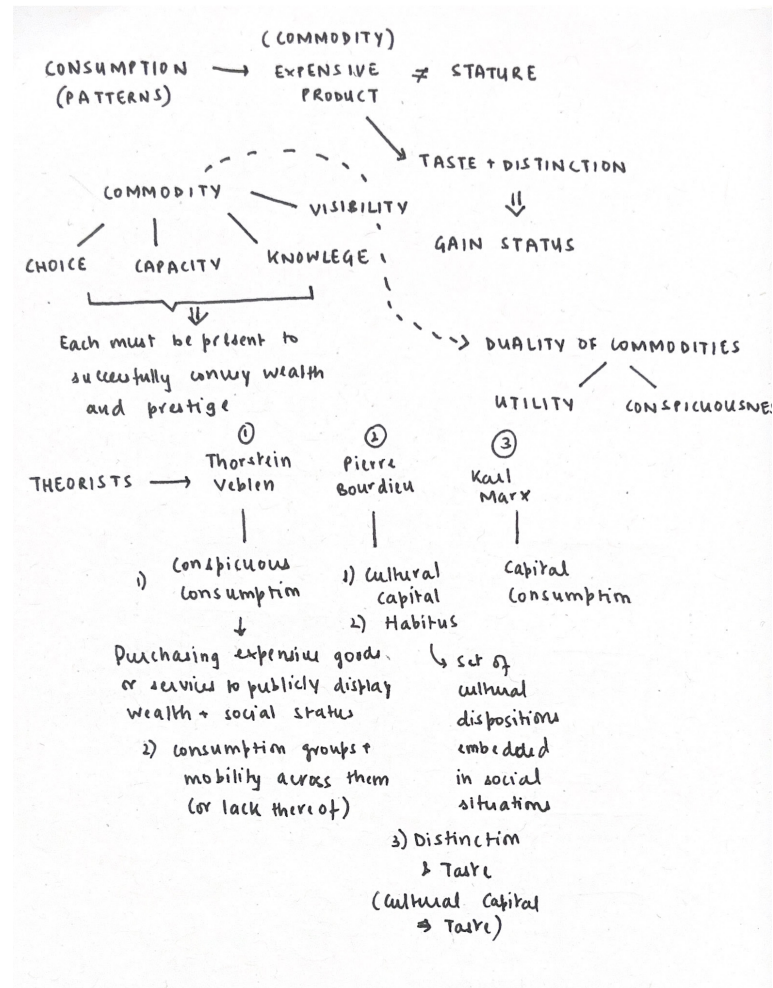 (COMMODITY)
CONSUMPTION → EXPENSIVE ≠ STATURE
(PATTERNS) PRODUCT
TASTE + DISTINCTION
COMMODITY
VISIBILITY
⇓
GAIN STATUS
CHOICE CAPACITY KNOWLEGE
⇓
Each must be present to
successfully convey wealth
and prestige
DUALITY OF COMMODITIES
UTILITY CONSPICUOUSNES
① ② ③
THEORISTS → Thorstein Pierre Karl
Veblen Bourdieu Marx
1) Conspicuous
Consumption
↓
Purchasing expensive goods
or services to publicly display
wealth + social status
2) consumption groups +
mobility across them
(or lack thereof)
1) Cultural
Capital
2) Habitus
↳ set of
cultural
dispositions
embedded
in social
situations
3) Distinction
& Taste
(Cultural Capital
⇒ Taste)
Capital
Consumption